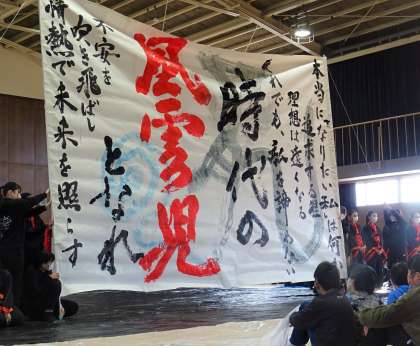 本当になりたい私は何
追求する程
理想は遠くなる
それでも、私は諦めない
時代の
風雲児
となれ
不安を
吹き飛ばし
情熱で未来を照らす